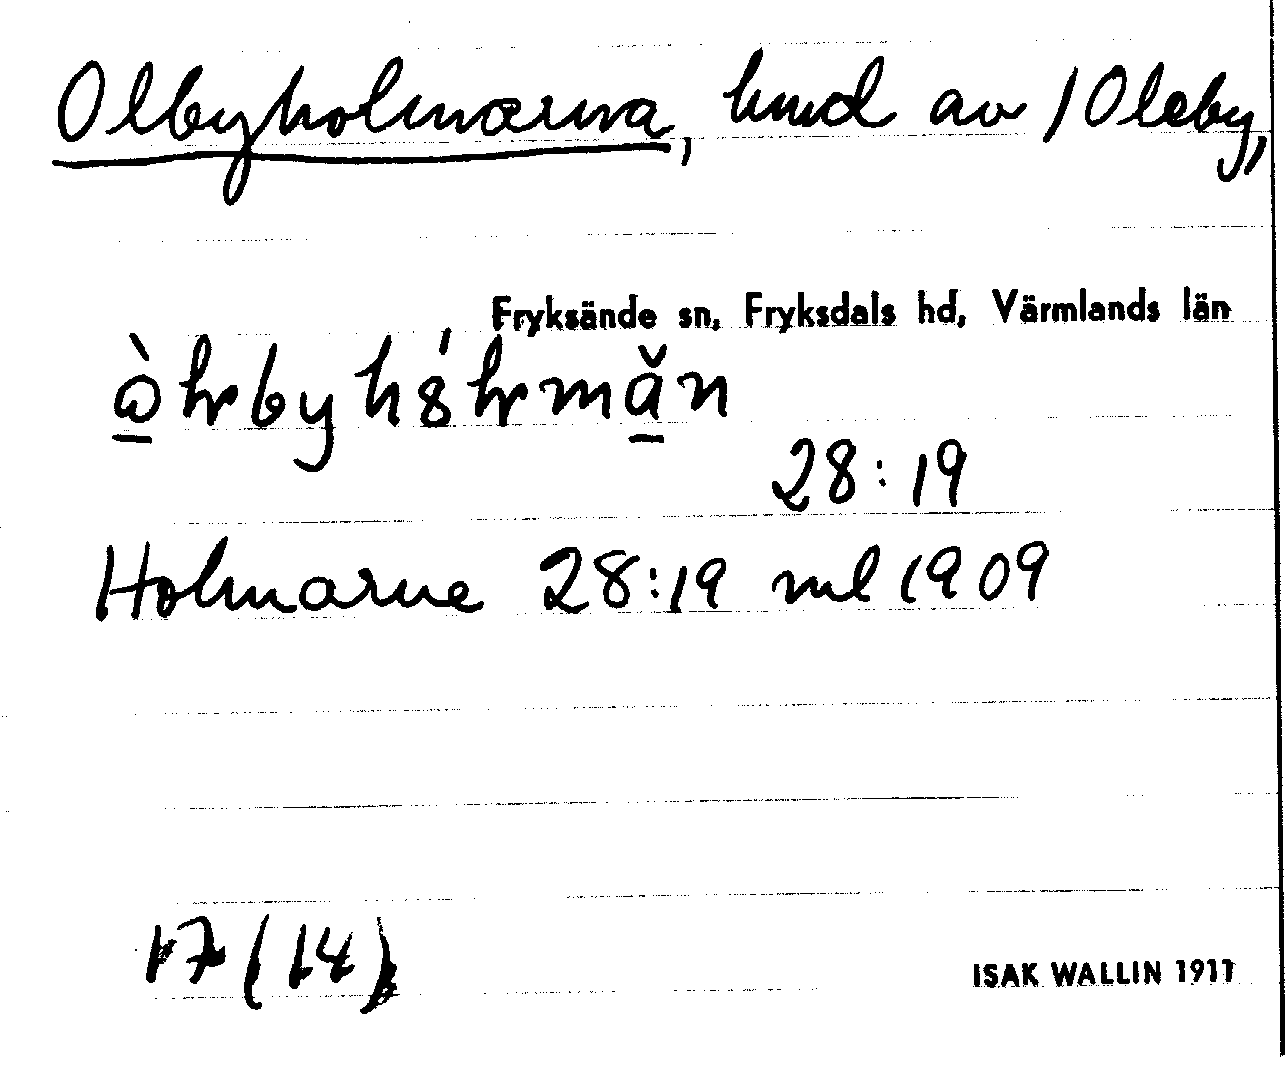 Olbyholmarna, hmd av /Oleby,
Fryksände sn, Fryksdals hd, Värmlands län
28:19
Holmarne 28:19 ml 1909
17 (14)
ISAK WALLIN 1911